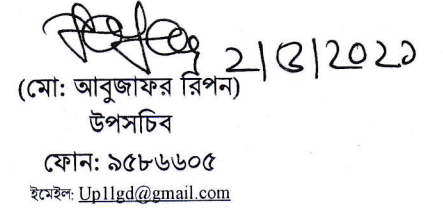 ২/৫/২০২১
(মো: আবুজাফর রিপন)
উপসচিব
ফোন: ৯৫৮৬৬০৫
ইমেইল: Up1lgd@gmail.com